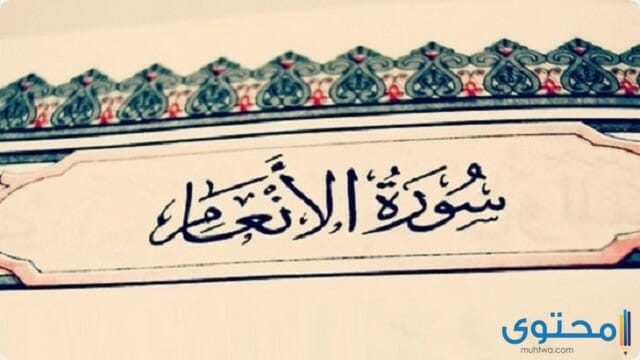 سُورَةُ الأَنْعَامِ
محتوى
muhtwa.com